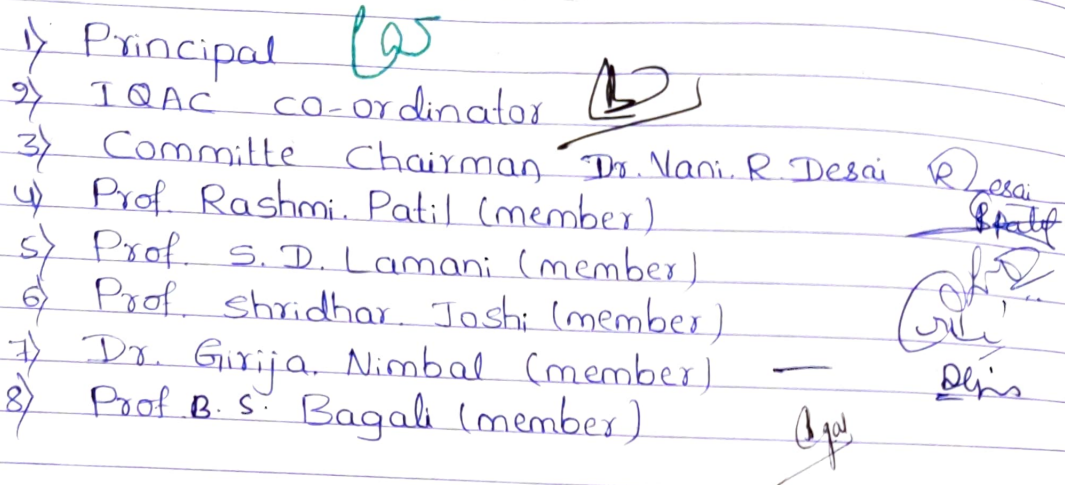 1) Principal
2) IQAC co-ordinator
3) Committe Chairman Dr. Vani. R. Desai Desai
4) Prof. Rashmi. Patil (member)
5) Prof. S. D. Lamani (member)
6) Prof. Shridhar. Joshi (member)
7) Dr. Girija. Nimbal (member) —
8) Prof B. S. Bagali (member)